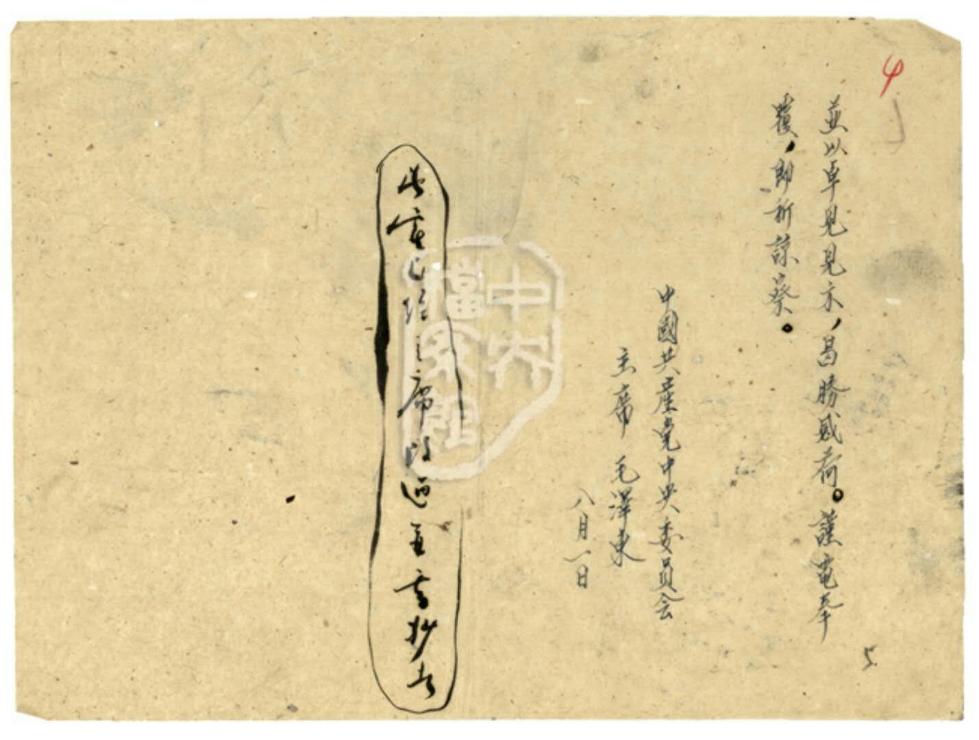 4
並以卓見見示，曷勝感荷。謹電奉
覆，即祈諒察。
中國共產党中央委員会
主席 毛澤東
八月一日
此電已经主席改過並言抄去
中央
檔案館
5